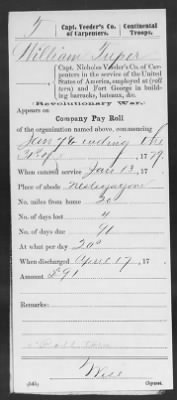 T
Capt. Veeder's Co.
of Carpenters.
Continental
Troops.
William
(Capt. Nicholas Veeder's Co. of Car-
penters in the service of the United
States of America, employed at
and Fort George in build-
ing barracks, bateaux, &c.
(Revolutionary War.)
Appears on
Company Pay Roll
of the organization named above, commencing
Jan 7 & ending the
1779.
When entered service Jan 13, 17
Place of abode
No. miles from home 30
No. of days lost 4
No. of days due 91
At what per day 20s
When discharged April 17, 17
Amount £91
Remarks:
(545)
Copyist.